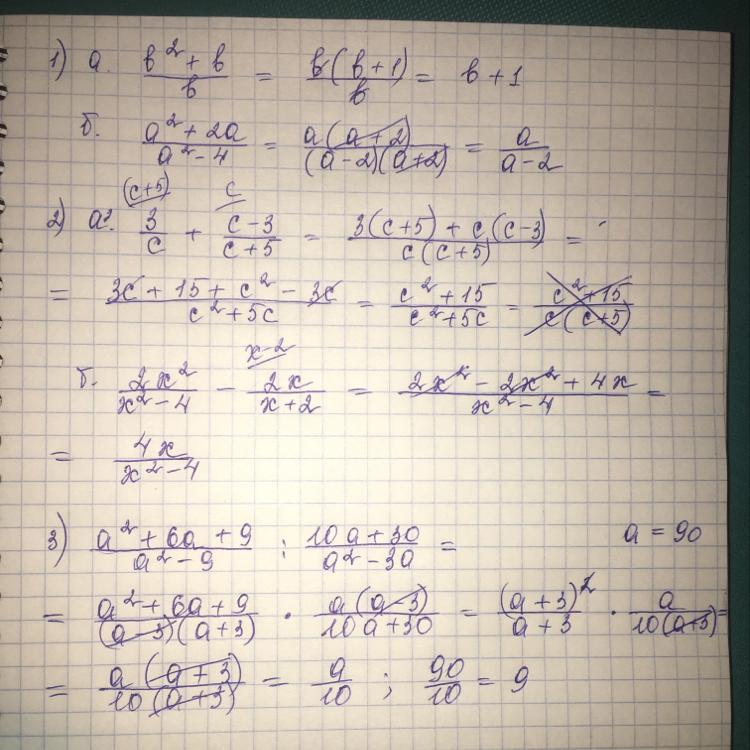 1) а. (в² + в)/в = в(в+1)/в = в + 1
б. (a² + 2a)/(a² - 4) = a(a+2)/((a-2)(a+2)) = a/(a-2)
(c+5) c
2) а. 3/c + (c-3)/(c+5) = (3(c+5) + c(c-3))/(c(c+5)) =
= (3c + 15 + c² - 3c)/(c² + 5c) = (c² + 15)/(c² + 5c) = (c² + 15)/(c(c+5))
x-2
б. 2x²/(x² - 4) - 2x/(x+2) = (2x² - 2x² + 4x)/(x² - 4) =
= 4x/(x² - 4)
3) (a² + 6a + 9)/(a² - 9) : (10a + 30)/(a² - 3a) = a = 90
= (a² + 6a + 9)/((a-3)(a+3)) · a(a-3)/(10a + 30) = (a+3)²/(a+3) · a/(10(a+3)) =
= a(a+3)/(10(a+3)) = a/10 ; 90/10 = 9